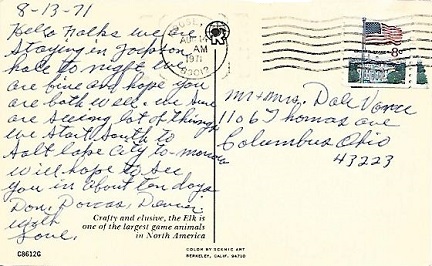 8-13-71
Hello Folks we are
staying in Jackson
hole to night we
are fine and hope you
are both well. we sure
are seeing lot of things
we start South to
Salt lape City to-morrow
will hope to see
you in about ten days
Don, Dorcas,
with
Love,
Crafty and elusive, the Elk is
one of the largest game animals
in North America
C8612C
COLOR BY SCENIC ART
BERKELEY, CALIF. 94710
AUG 14
AM
1971
83012
8c
Mr + Mrs. Dale Vance
1106 Thomas ave
Columbus Ohio
43223